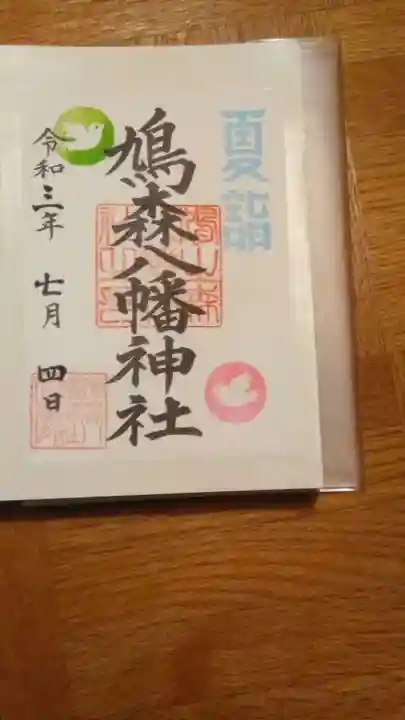 夏詣
鳩森八幡神社
令和三年 七月 四日